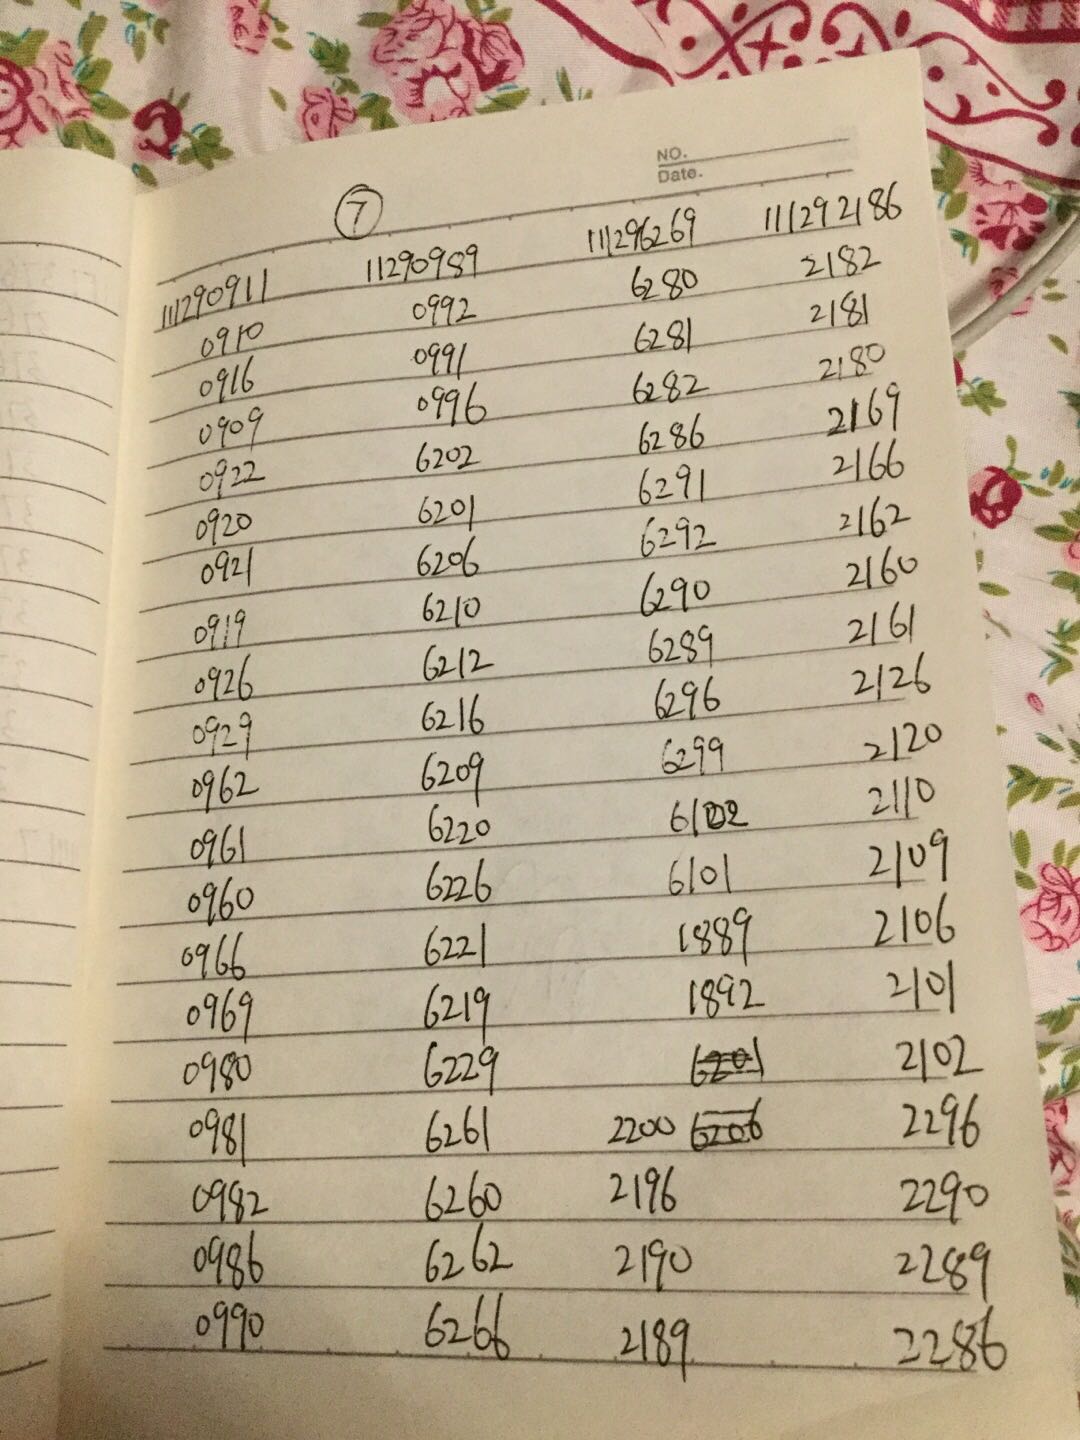 NO.
Date.
⑦
111290911 11290989 111296269 111292186
0910 0992 6280 2182
0916 0991 6281 2181
0909 0996 6282 2180
0922 6202 6286 2169
0920 6201 6291 2166
0921 6206 6292 2162
0919 6210 6290 2160
0926 6212 6289 2161
0929 6216 6296 2126
0962 6209 6299 2120
0961 6220 6102 2110
0960 6226 6101 2109
0966 6221 1889 2106
0969 6219 1892 2101
0980 6229 6201 2102
0981 6261 2200 6206 2296
0982 6260 2196 2290
0986 6262 2190 2289
0990 6266 2189 2286